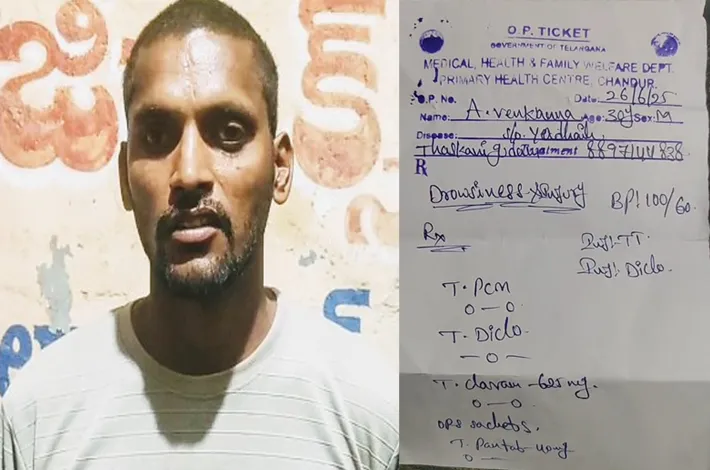 O.P. TICKET
GOVERNMENT OF TELANGANA
MEDICAL, HEALTH & FAMILY WELFARE DEPT.
PRIMARY HEALTH CENTRE, CHANDUR.
O.P. No. Date: 26/6/25
Name: A. Venkanna Age: 30y Sex: M
Disease: S/o. Yadhaiah
8897144838
R
Drowsiness Injury BP! 100/60.
Rx Inj!- TT
Inj!. Diclo.
T. Pcm
o — o
T. Diclo
— o —
T. clavam - 625 mg.
o — o
ORS sachets.
T. Pantab 40mg
o —